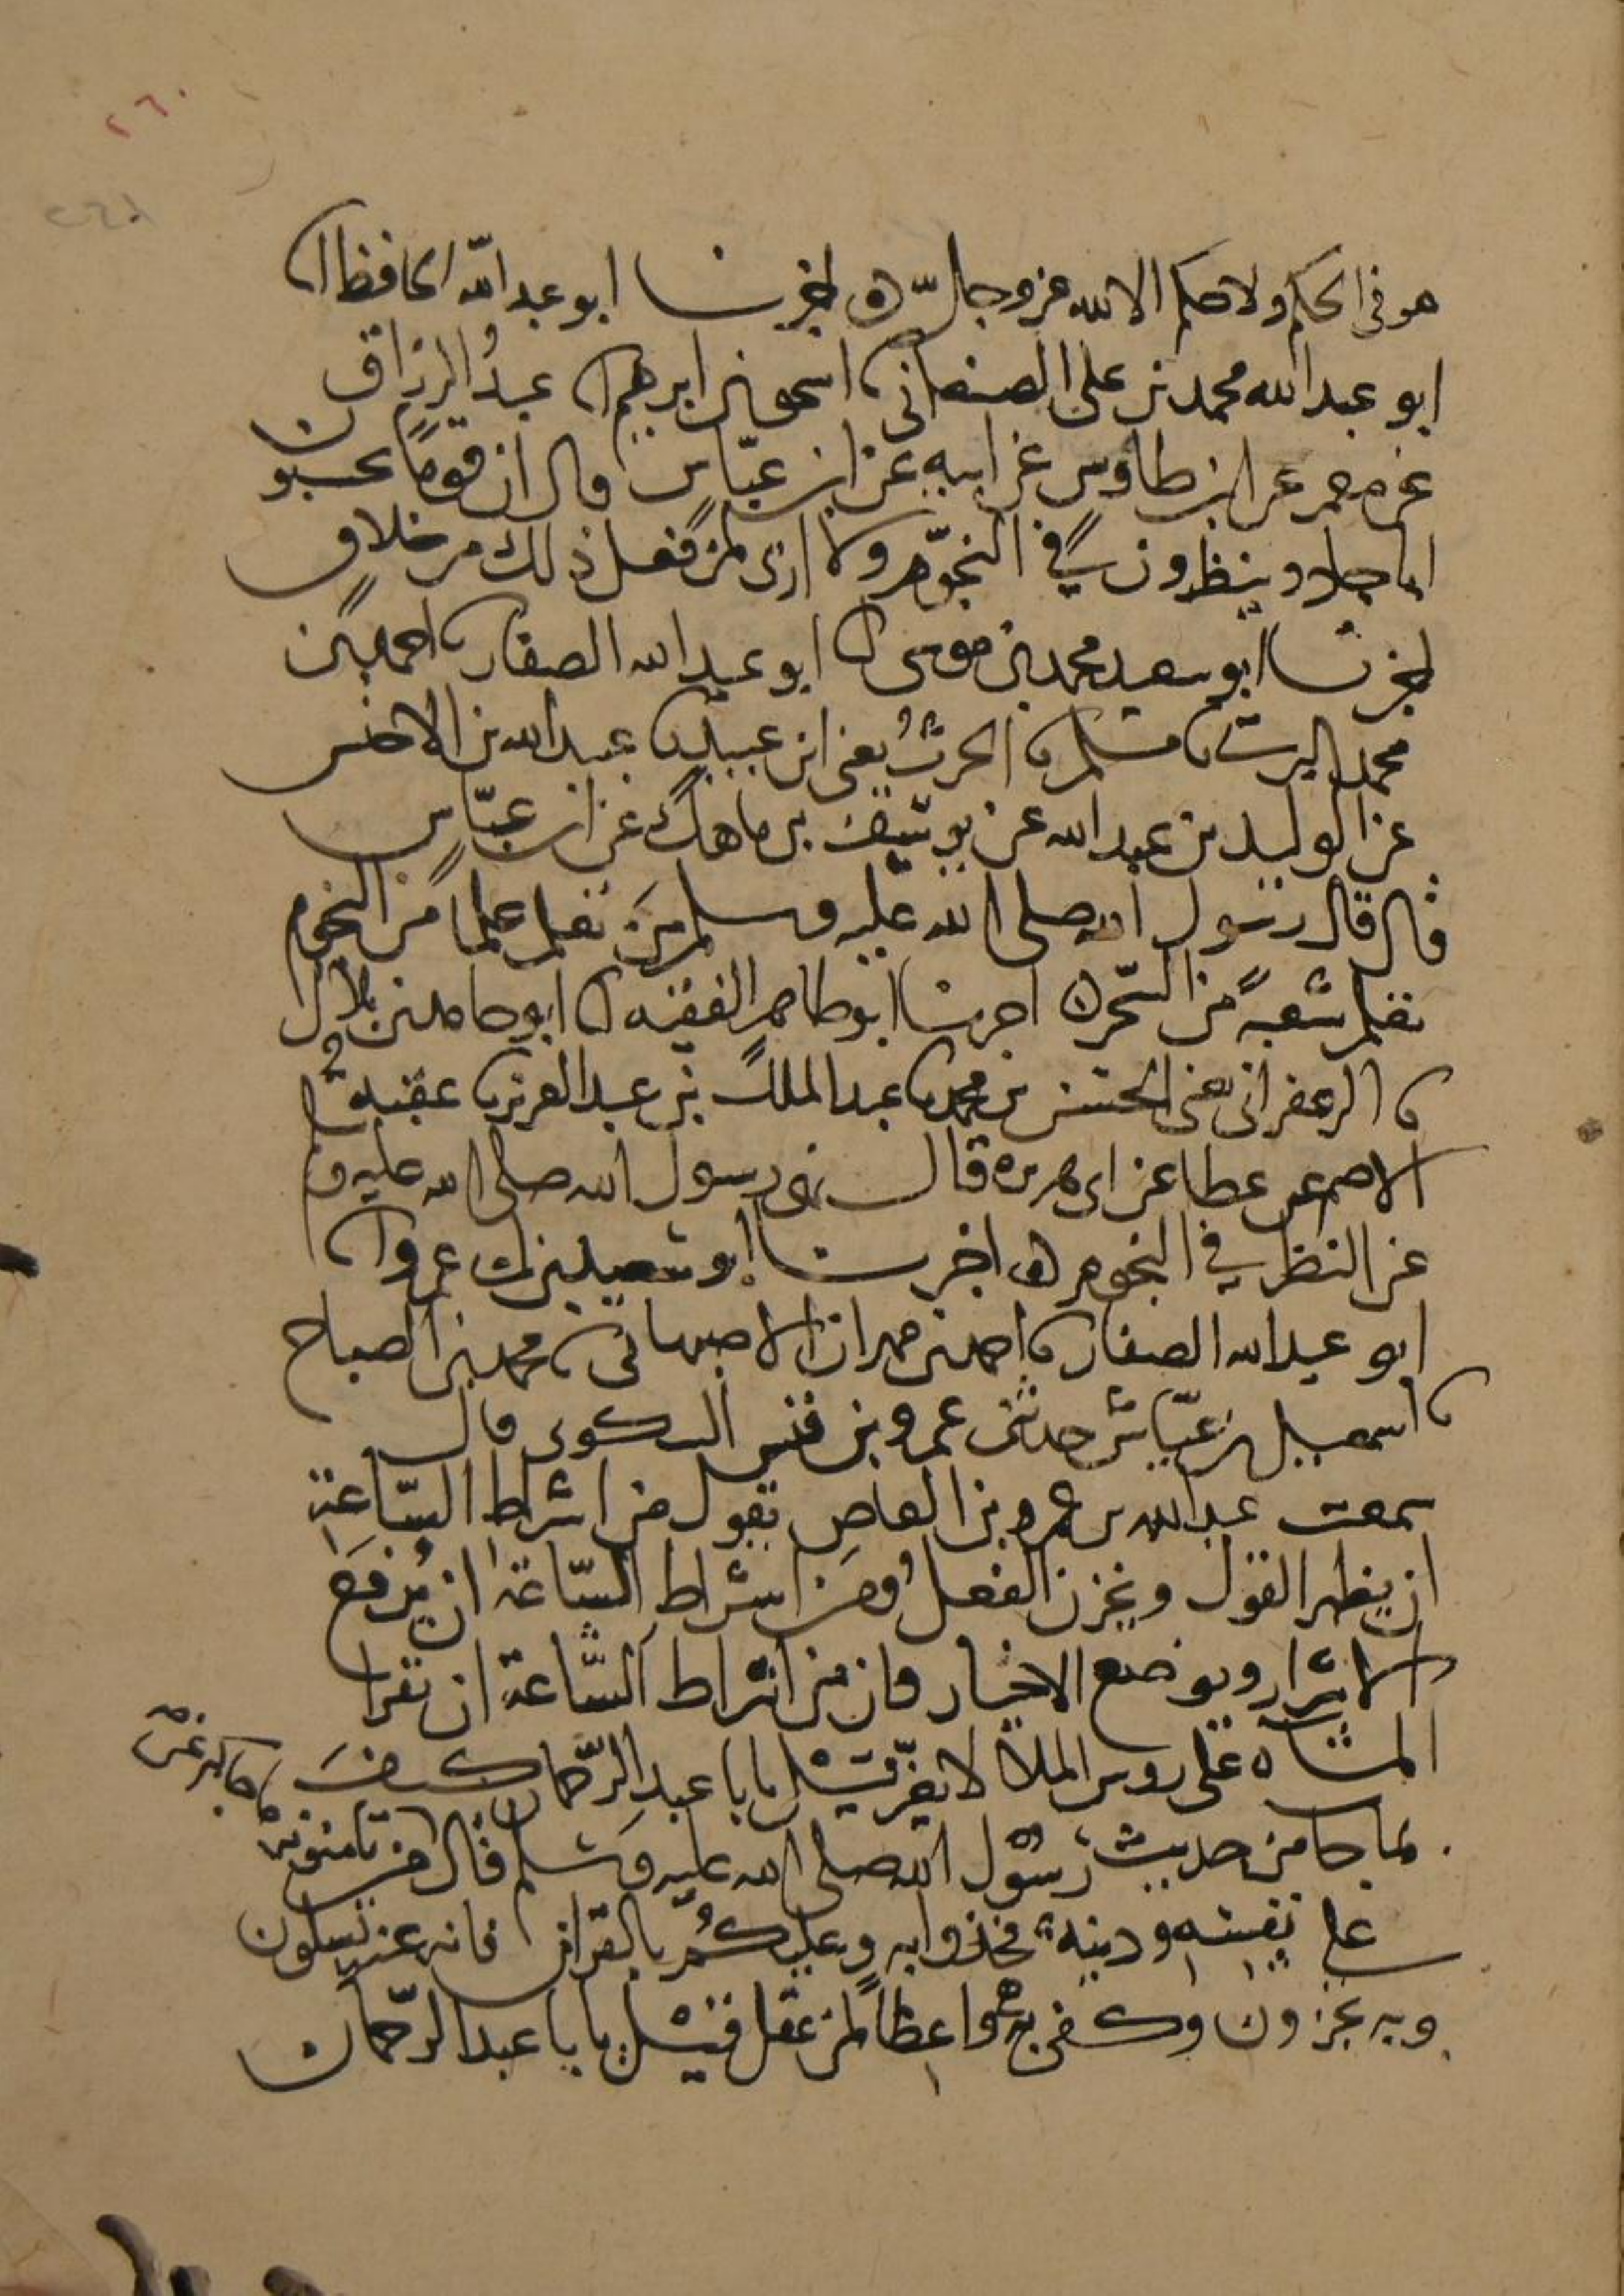 ٢٦٠
هو في الحكم ولا حكم الا لله عز وجل ه اخبرنا ابو عبد الله الحافظ انا
ابو عبد الله محمد بن على الصنعاني نا اسحق بن ابرهيم انا عبدُ الرزاق
عن معمر عن ابن طاوس عن ابيه عن ابن عبّاس قال ان قومًا يحسبون
ابا جاد وينظرون في النجوّم ولا ارى لمن فعل ذلك من خلاق
اخبرنا ابو سعيد محمد بن موسى انا ابو عبد الله الصفار نا احمد بن
محمد البرتي نا مسلم نا الحرثُ يعنى ابن عبيد نا عبيد الله بن الاخنس
عن الوليد بن عبد الله عن يوسف بن ماهك عن ابن عبّاس
قال قال رسول الله صلى الله عليه وسلم منَ تعلم علما من النجوم
تعلم شعبةً من السّحر ه اخبرنا ابو طاهر الفقيه انا ابو حامد بن بلال
نا الزعفراني يعنى الحسن بن محمد نا عبد الملك بن عبد العزيز نا عقبة
الاصم عن عطا عن ابى هريرة قال نهى رسول الله صلى الله عليه وسلم
عن النظر في النجوم ه اخبرنا ابو سعيد بن ابى عمرو انا
ابو عبد الله الصفار نا احمد بن مهران الاصبهانى نا محمد بن الصباح
نا اسمعيل بن عيّاش حدثنى عمرو بن قيس السكونى قال
سمعت عبد الله بن عمرو بن العاص يقول من اشراط السّاعَةِ
ان يظهر القول ويخزن الفعلُ ومن اشراط السّاعة ان يُرفعَ
الاشرار ويوضع الاخيار وان من اشراط السّاعة ان تقرا
المثناه على روس الملأ لا يغيّر قيل يا با عبد الرّحمان كيفَ
بما جا من حديث رسُول الله صلى الله عليه وسلم قال من تامنونه
على نفسه ودينه فخذوا به وعليكُم بالقران فانه عنه تسلون
وبه تجزون وكفى به واعظاً لمن عقل فقيل يا با عبد الرّحمان